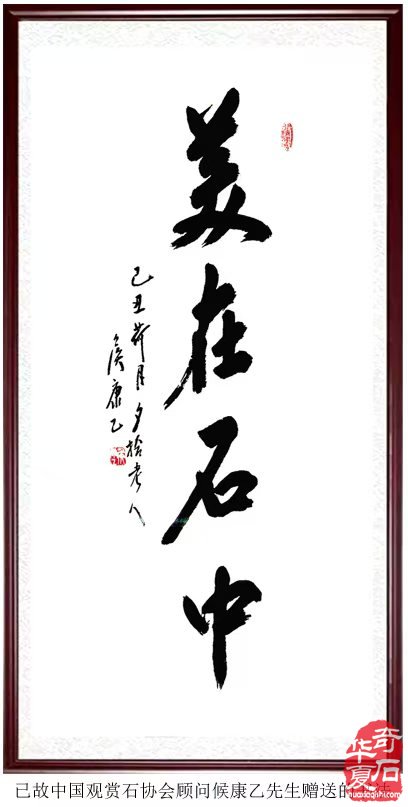 美在石中
己丑荷月夕拾老人
侯康乙
已故中国观赏石协会顾问候康乙先生赠送的
华夏奇石